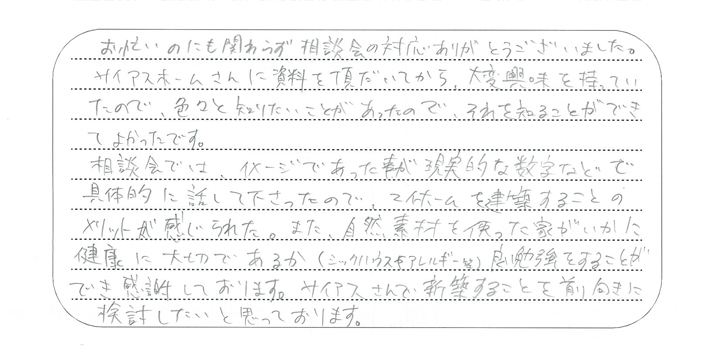 お忙しいのにも関わらず相談会の対応ありがとうございました。
サイアスホームさんに資料を頂だいてから、大変興味を持ってい
たので、色々と知りたいことがあったので、それを知ることができ
てよかったです。
相談会では、イメージであった事が現実的な数字などで
具体的に話して下さったので、マイホームを建築することの
メリットが感じられた。また、自然素材を使った家がいかに
健康に大切であるか(シックハウスやアレルギー等)良い勉強をすることが
でき感謝しております。サイアスさんで新築することを前向きに
検討したいと思っております。